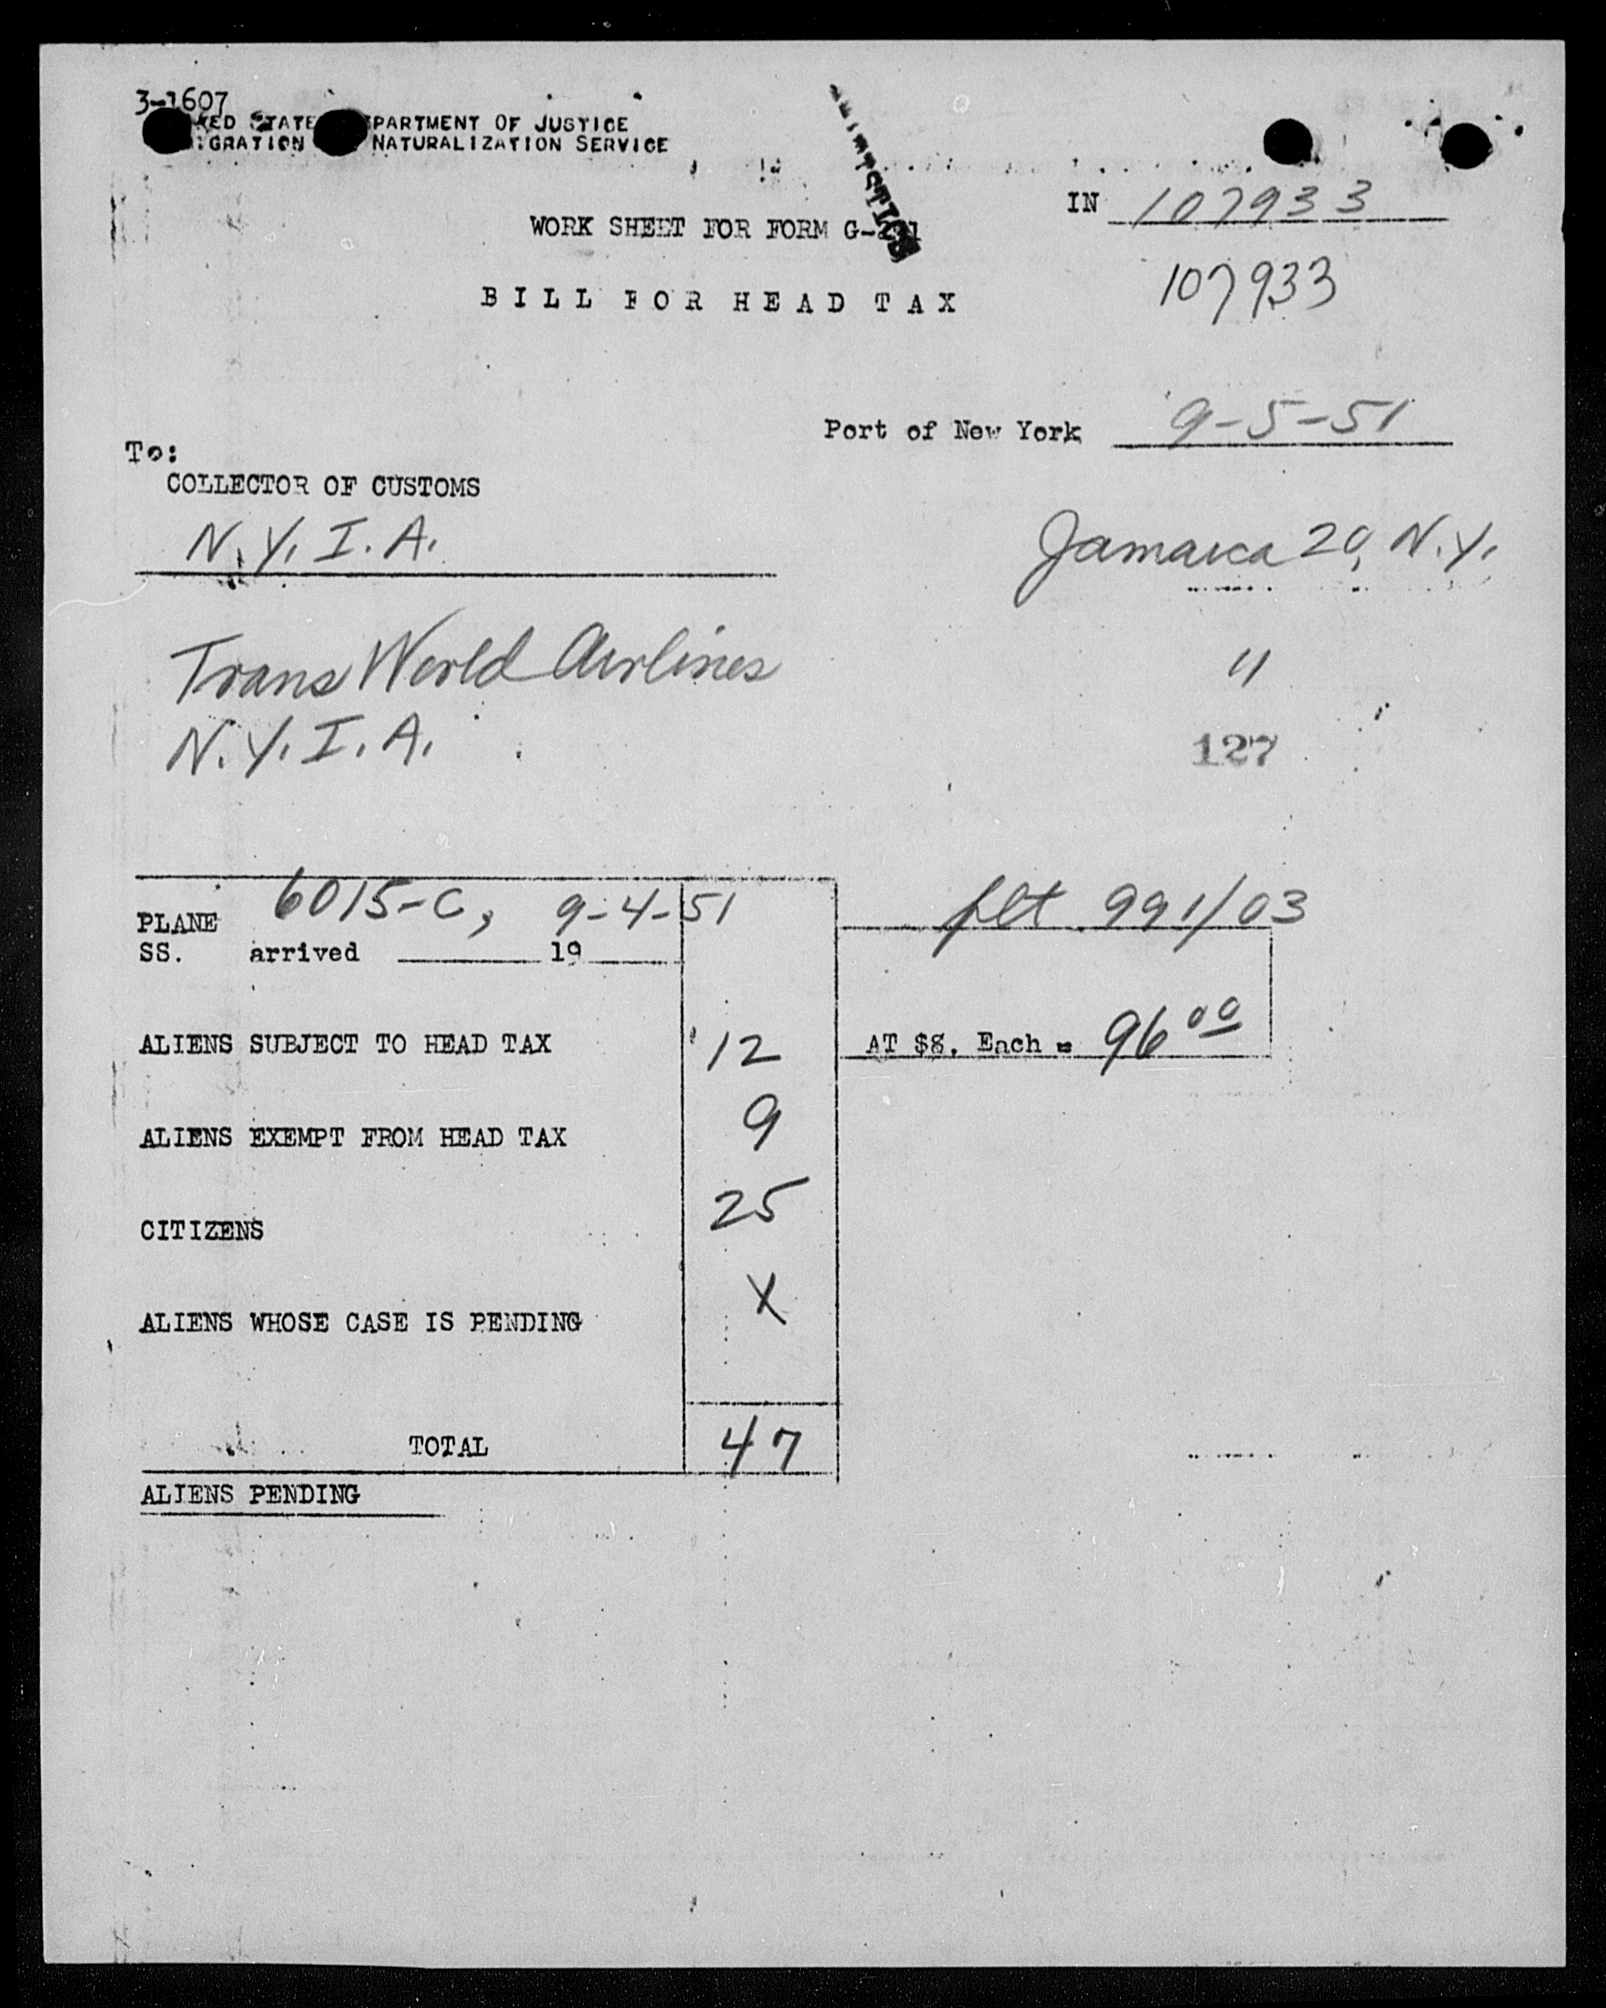 3-1607
STATE PARTMENT OF JUSTICE
NATURALIZATION SERVICE
IN 107933
WORK SHEET FOR FORM
107933
BILL FOR HEAD TAX
Port of New York 9-5-51
To:
COLLECTOR OF CUSTOMS
N.Y.I.A. Jamaica 20, N.Y.
Trans World Airlines "
N.Y.I.A. 127
PLANE 6015-C, 9-4-51 flt 991/03
SS. arrived 19
ALIENS SUBJECT TO HEAD TAX 12 AT $8. Each = 96 00
ALIENS EXEMPT FROM HEAD TAX 9
CITIZENS 25
ALIENS WHOSE CASE IS PENDING X
TOTAL 47
ALIENS PENDING